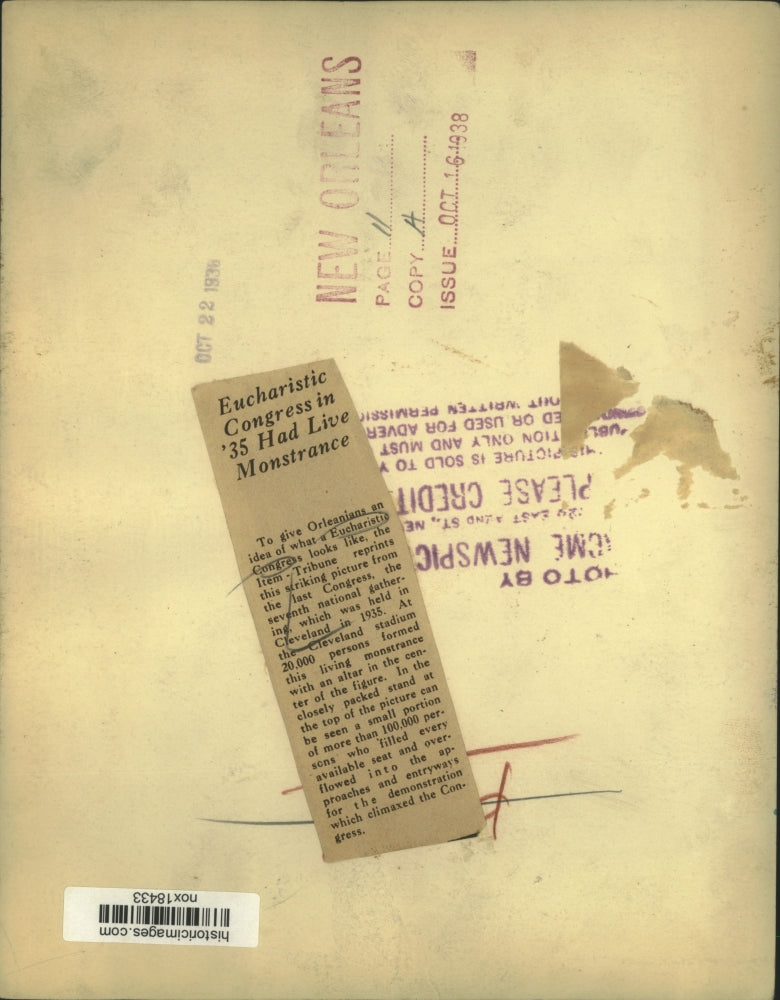 NEW ORLEANS
PAGE 11
COPY A
ISSUE OCT 16 1938
OCT 22 1938
Eucharistic
Congress in
'35 Had Live
Monstrance
To give Orleanians an
idea of what a Eucharistic
Congress looks like, the
Item-Tribune reprints
this striking picture from
the last Congress, the
seventh national gather-
ing, which was held in
Cleveland in 1935. At
the Cleveland stadium
20,000 persons formed
this living monstrance
with an altar in the cen-
ter of the figure. In the
closely packed stand at
the top of the picture can
be seen a small portion
of more than 100,000 per-
sons who filled every
available seat and over-
flowed into the ap-
proaches and entryways
for the demonstration
which climaxed the Con-
gress.
OTO BY
ACME NEWSPIC
EAST 42ND ST., NE
PLEASE CREDIT
PICTURE IS SOLD TO Y
TION ONLY AND MUST
ED OR USED FOR ADVER
OUT WRITTEN PERMISSI
historicimages.com
nox18433